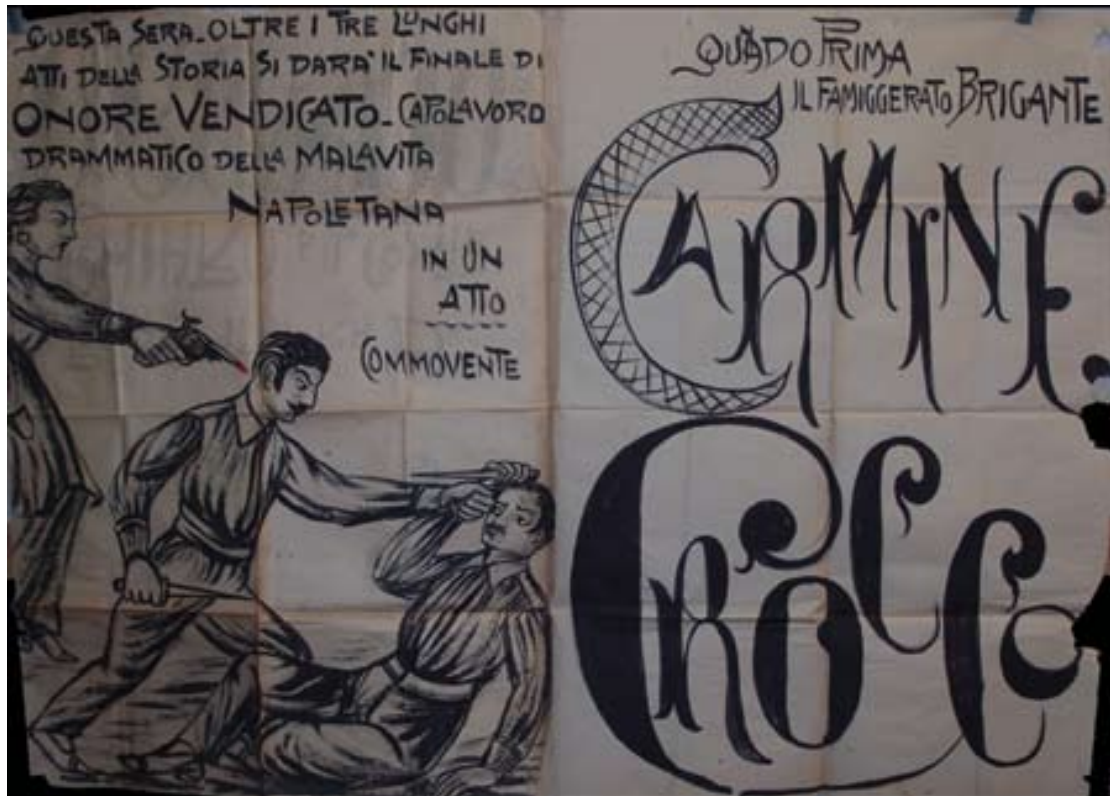 QUESTA SERA_OLTRE I TRE LUNGHI
ATTI DELLA STORIA SI DARA' IL FINALE DI
ONORE VENDICATO_CAPOLAVORO
DRAMMATICO DELLA MALAVITA
NAPOLETANA
IN UN
ATTO
COMMOVENTE
QUĀDO PRIMA
IL FAMIGGERATO BRIGANTE
CARMINE
CROCCO